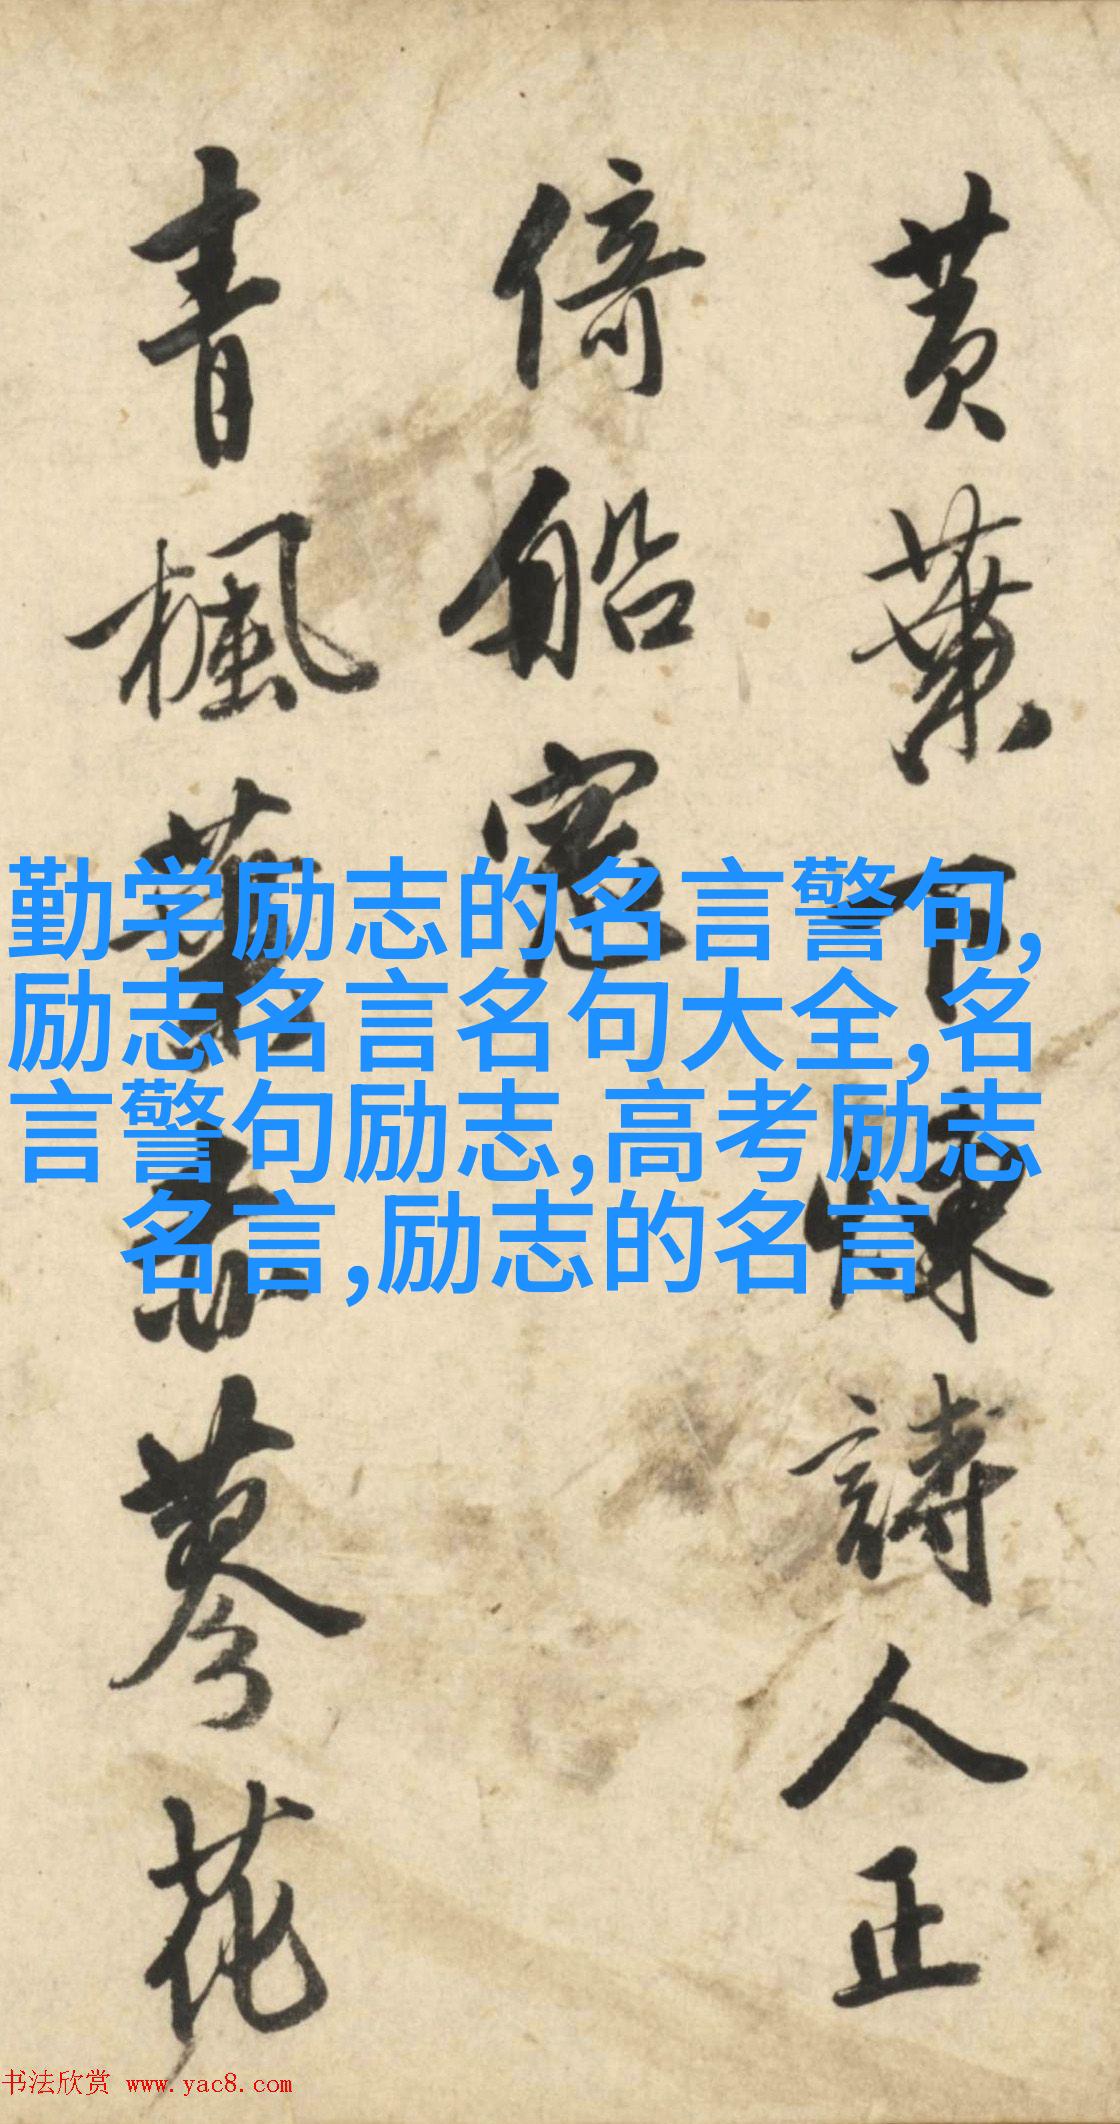 黄葉下詩人正
倚船窓
青楓葉蓼花
勤学励志的名言警句,
励志名言名句大全,名
言警句励志,高考励志
名言,励志的名言
书法欣赏 www.yac8.com